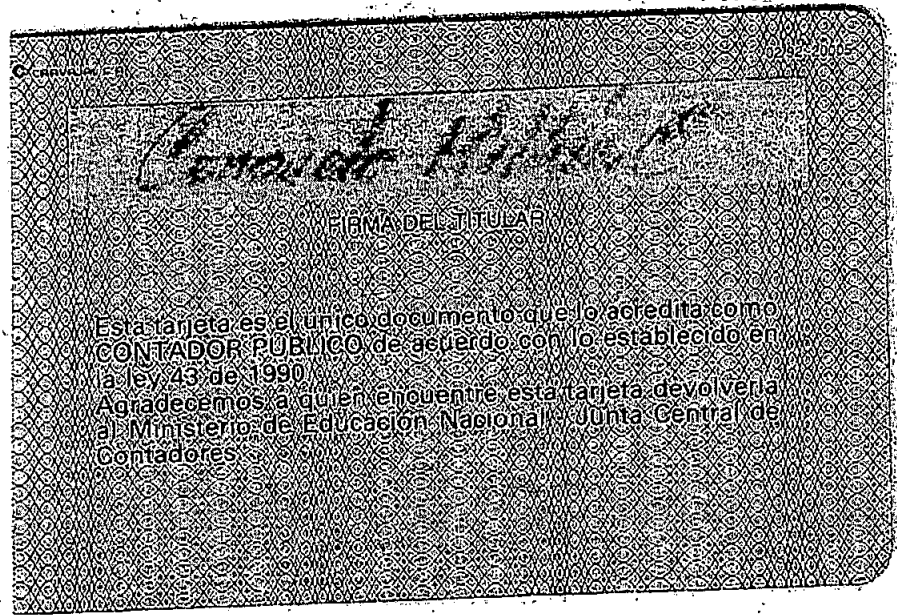 FIRMA DEL TITULAR
Esta tarjeta es el unico documento que lo acredita como
CONTADOR PUBLICO de acuerdo con lo establecido en
la ley 43 de 1990
Agradecemos a quien encuentre esta tarjeta devolverla
al Ministerio de Educación Nacional - Junta Central de
Contadores